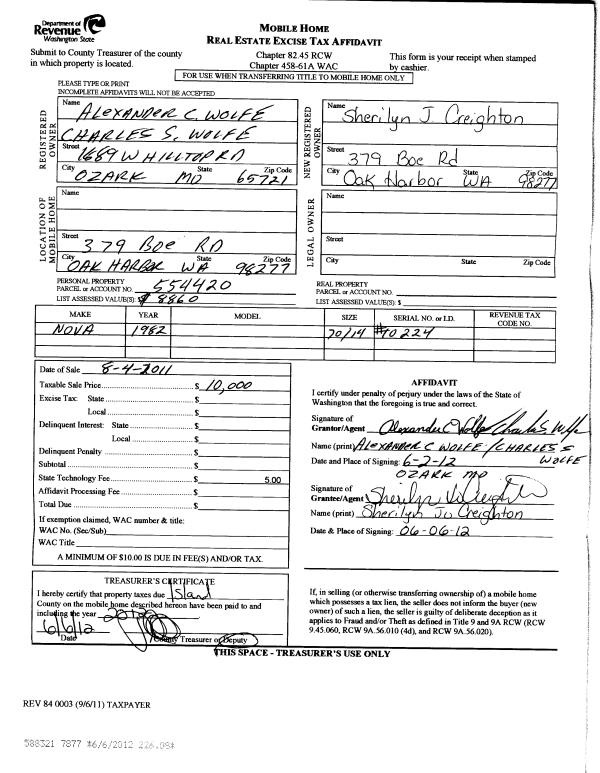 Department of
Revenue
Washington State
MOBILE HOME
REAL ESTATE EXCISE TAX AFFIDAVIT
Submit to County Treasurer of the county
in which property is located.
Chapter 82.45 RCW
Chapter 458-61A WAC
This form is your receipt when stamped
by cashier.
FOR USE WHEN TRANSFERRING TITLE TO MOBILE HOME ONLY
PLEASE TYPE OR PRINT
INCOMPLETE AFFIDAVITS WILL NOT BE ACCEPTED
REGISTERED OWNER
Name
ALEXANDER C. WOLFE
CHARLES S. WOLFE
Street
1689 W HILLTOP RD
City State Zip Code
OZARK MO 65721
NEW REGISTERED OWNER
Name
Sherilyn J Creighton
Street
379 Boe Rd
City State Zip Code
Oak Harbor WA 98277
LOCATION OF MOBILE HOME
Name
Street
379 Boe RD
City State Zip Code
OAK HARBOR WA 98277
LEGAL OWNER
Name
Street
City State Zip Code
PERSONAL PROPERTY
PARCEL or ACCOUNT NO. 554420
LIST ASSESSED VALUE(S): $ 8860
REAL PROPERTY
PARCEL or ACCOUNT NO.
LIST ASSESSED VALUE(S): $
MAKE YEAR MODEL SIZE SERIAL NO. or I.D. REVENUE TAX CODE NO.
NOVA 1982 70/14 #70224
Date of Sale 8-4-2011
Taxable Sale Price $ 10,000
Excise Tax: State $
Local $
Delinquent Interest: State $
Local $
Delinquent Penalty $
Subtotal $
State Technology Fee $ 5.00
Affidavit Processing Fee $
Total Due $
If exemption claimed, WAC number & title:
WAC No. (Sec/Sub)
WAC Title
A MINIMUM OF $10.00 IS DUE IN FEE(S) AND/OR TAX.
AFFIDAVIT
I certify under penalty of perjury under the laws of the State of
Washington that the foregoing is true and correct.
Signature of
Grantor/Agent Alexander C Wolfe / Charles S. Wolfe
Name (print) ALEXANDER C WOLFE / CHARLES S
WOLFE
Date and Place of Signing: 6-2-12
OZARK MO
Signature of
Grantee/Agent Sherilyn J Creighton
Name (print) Sherilyn J. Creighton
Date & Place of Signing: 06-06-12
TREASURER'S CERTIFICATE
I hereby certify that property taxes due Island
County on the mobile home described hereon have been paid to and
including the year 2012
6/6/12
Date County Treasurer or Deputy
If, in selling (or otherwise transferring ownership of) a mobile home
which possesses a tax lien, the seller does not inform the buyer (new
owner) of such a lien, the seller is guilty of deliberate deception as it
applies to Fraud and/or Theft as defined in Title 9 and 9A RCW (RCW
9.45.060, RCW 9A.56.010 (4d), and RCW 9A.56.020).
THIS SPACE - TREASURER'S USE ONLY
REV 84 0003 (9/6/11) TAXPAYER
588321 7877 *6/6/2012 226.08*